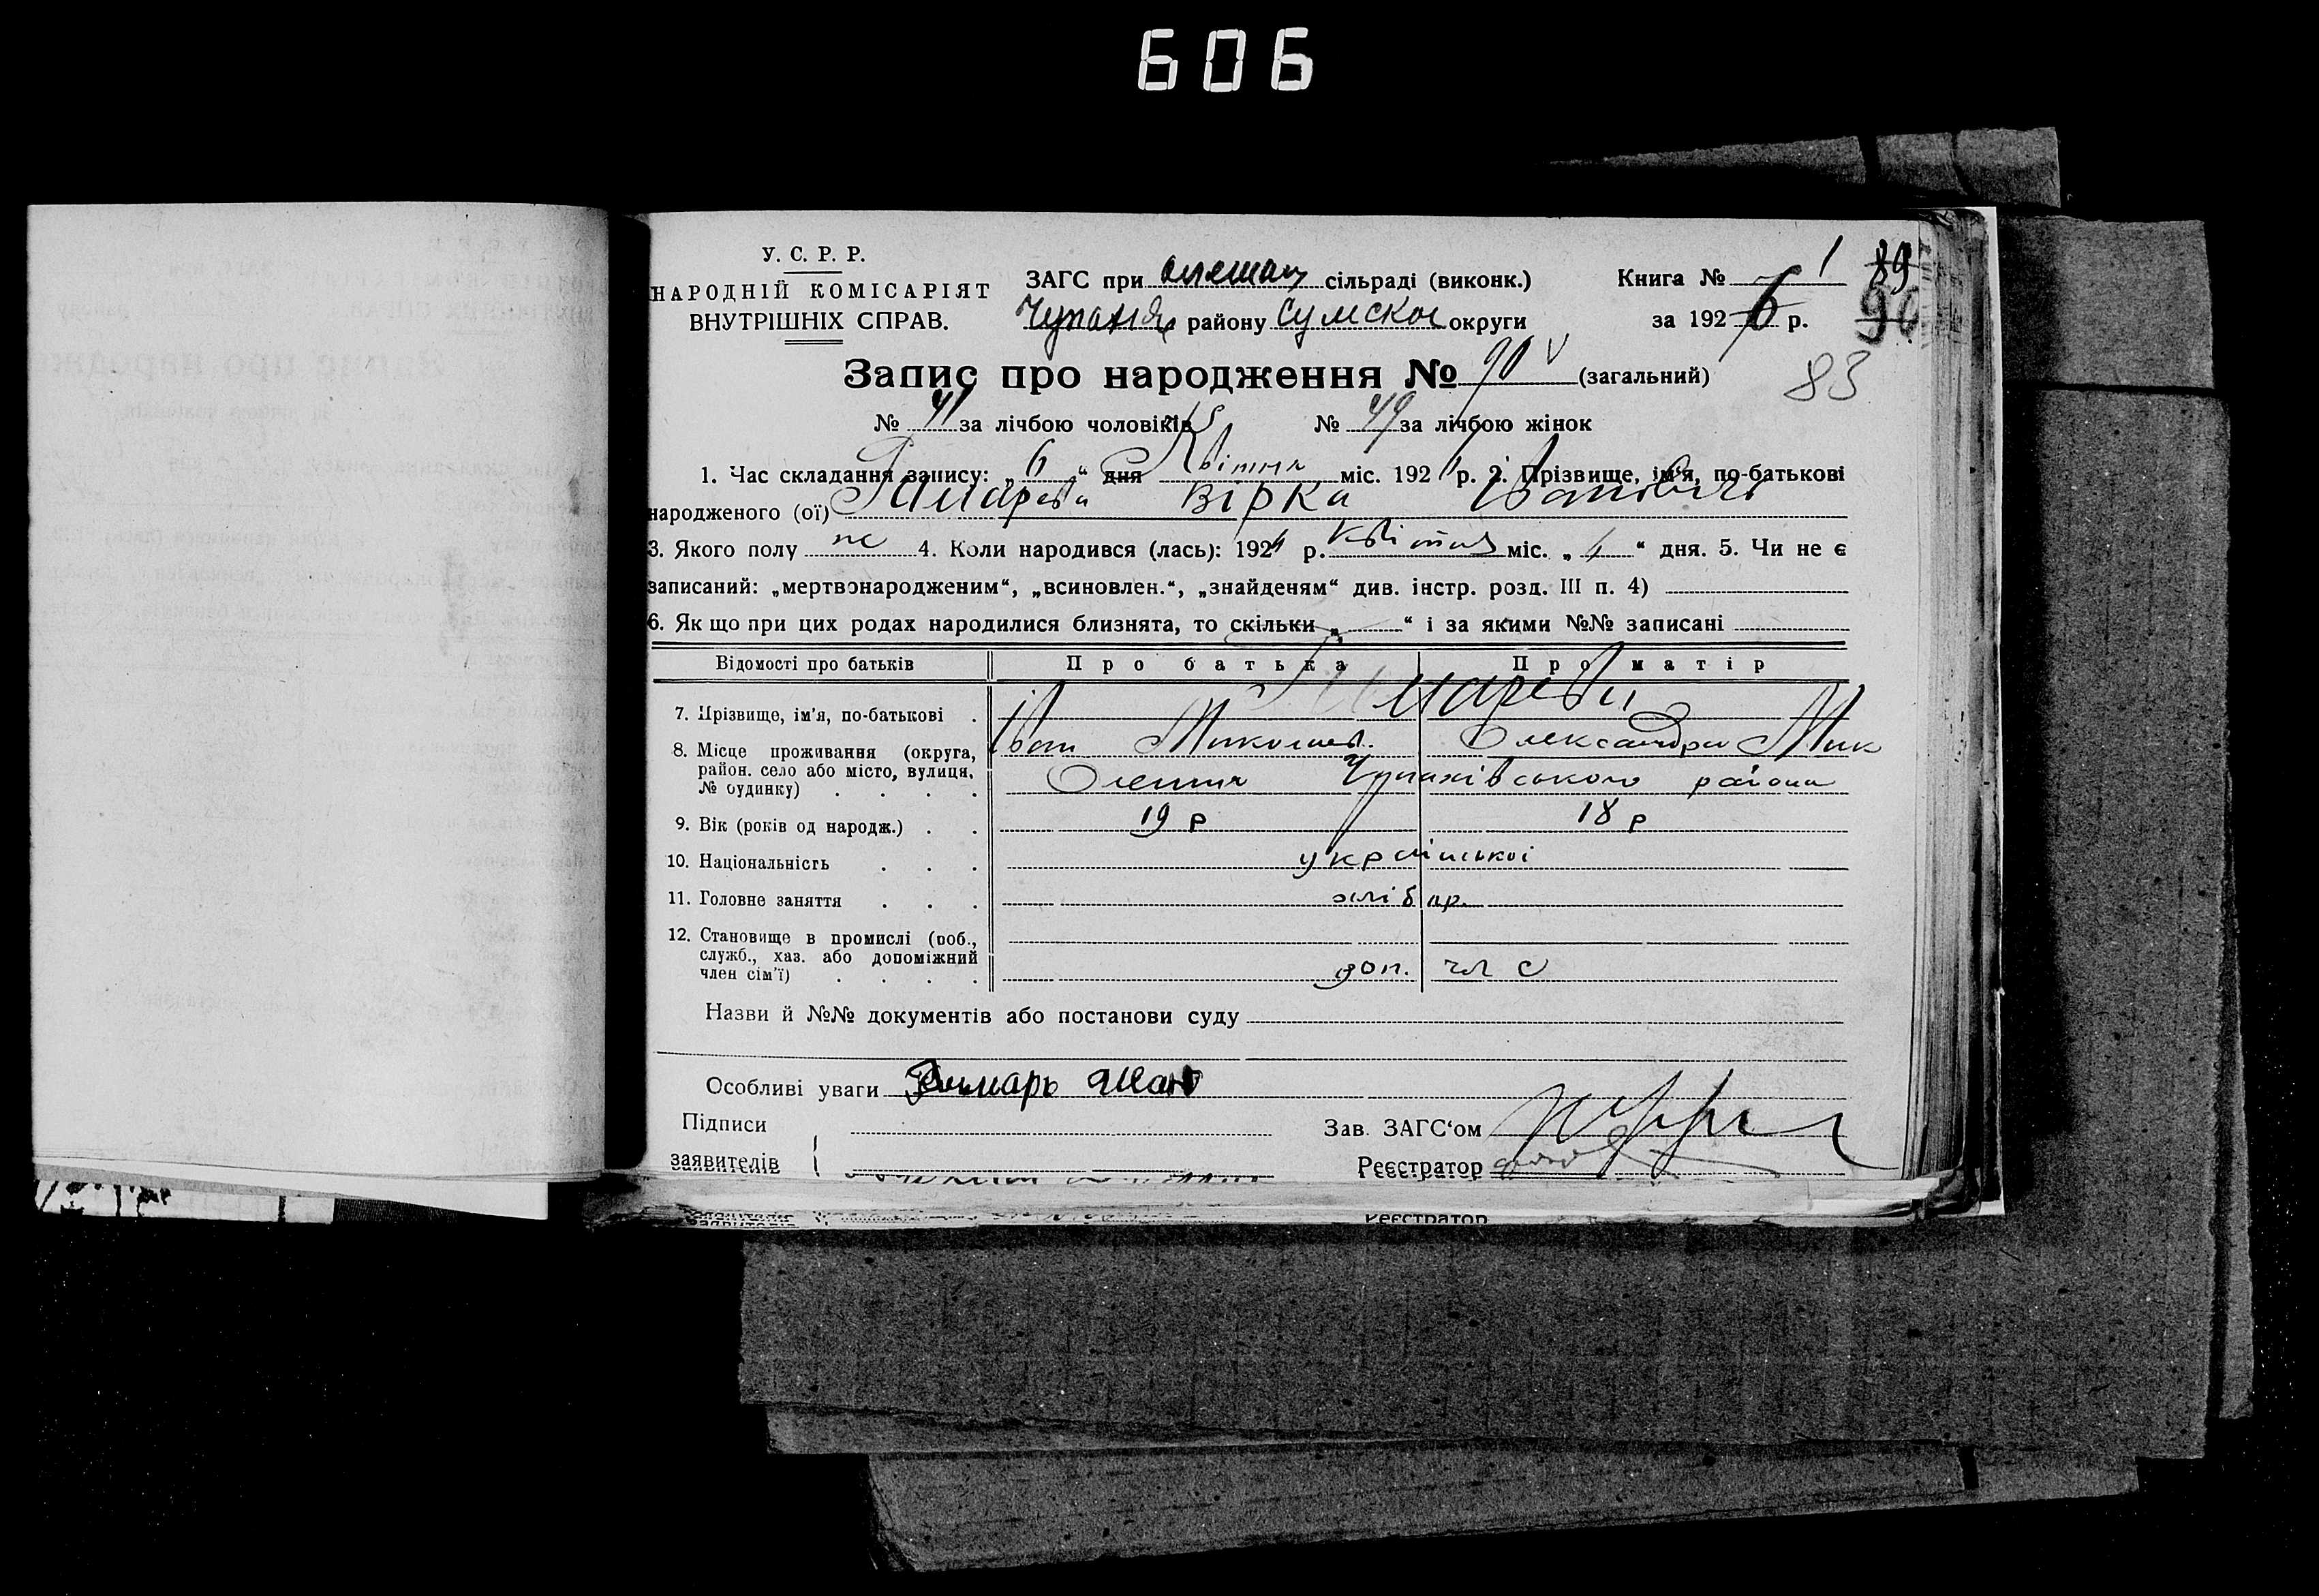 606
У. С. Р. Р.
НАРОДНІЙ КОМІСАРІЯТ
ВНУТРІШНІХ СПРАВ.
ЗАГС при сільраді (виконк.)
району Сумской округи
Книга № 1
за 1926 р.
89
90
83
Запис про народження № 90 (загальний)
№ 41 за лічбою чоловіків № 49 за лічбою жінок
1. Час складання запису: „ 6 “ дня Квітня міс. 1926 р. 2. Прізвище, ім'я, по-батькові
народженого (ої) Вірка
3. Якого полу 4. Коли народився (лась): 1926 р. квітня міс. „ “ дня. 5. Чи не є
записаний: „мертвонародженим“, „всиновлен.“, „знайденям“ див. інстр. розд. III п. 4)
6. Якщо при цих родах народилися близнята, то скільки „ “ і за якими №№ записані
Відомості про батьків Про батька Про матір
7. Прізвище, ім'я, по-батькові
Іван Миколаев. Олександра Мик
8. Місце проживання (округа, район. село або місто, вулиця, № будинку) Олешня Чупахівського района
9. Вік (років од народж.) 19 р 18 р
10. Національність української
11. Головне заняття хліб
12. Становище в промислі (роб., служб., хаз. або допоміжний член сім'ї) доп. чл с
Назви й №№ документів або постанови суду
Особливі уваги
Підписи
заявителів
Зав. ЗАГС‘ом
Реєстратор
заявителів
Реєстратор